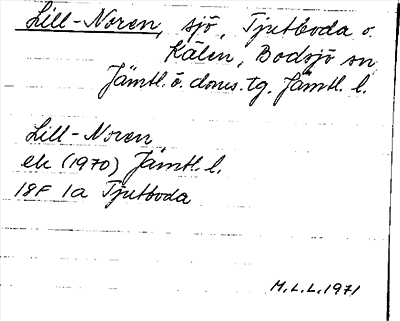 Lill-Noren, sjö, Tjutboda o.
Kälen, Bodsjö sn
Jämtl. ö. doms. tg. Jämtl. l.
Lill-Noren
ek (1970) Jämtl. l.
18F 1a Tjutboda
M.L.L. 1971